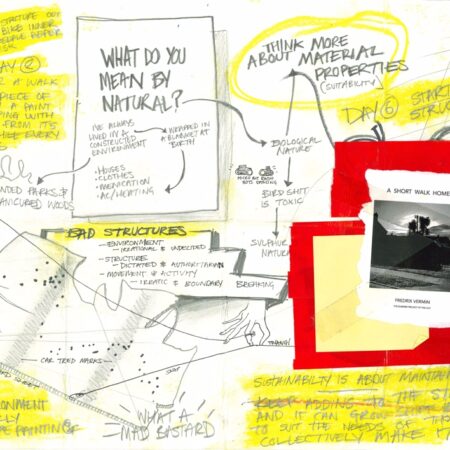 STRUCTURE OUT
BIKE INNER
DAY ②
A WALK
PIECE OF
A PAINT
PING WITH
FROM ITS
EVERY
WHAT DO YOU
MEAN BY
NATURAL?
I'VE ALWAYS
LIVED IN A
CONSTRUCTED
ENVIRONMENT
• HOUSES
• CLOTHES
• MEDICATION
• AC/HEATING
WRAPPED IN
A BLANKET AT
BIRTH
THINK MORE
ABOUT MATERIAL
PROPERTIES
(SUITABILITY)
DAY ⑥ START
STRUC
BIOLOGICAL
NATURE
BIRD SHIT
IS TOXIC
SULPHUR
NATURA
NDED PARKS &
ANICURED WOODS
BAD STRUCTURES
- ENVIRONMENT
- IRRATIONAL & UNDECIDED
- STRUCTURES
- DICTATED & AUTHORITARIAN
- MOVEMENT & ACTIVITY
- ERRATIC & BOUNDARY
BREAKING
CAR TRED MARKS
A SHORT WALK HOME
FREDRIK VERMIN
WHAT A
MAD BASTARD
RONMENT
PAINTING OF
SUSTAINABILTY IS ABOUT MAINTAI
KEEP ADDING TO THE
AND IT CAN GROW
TO SUIT THE NEEDS OF
COLLECTIVELY MAKE